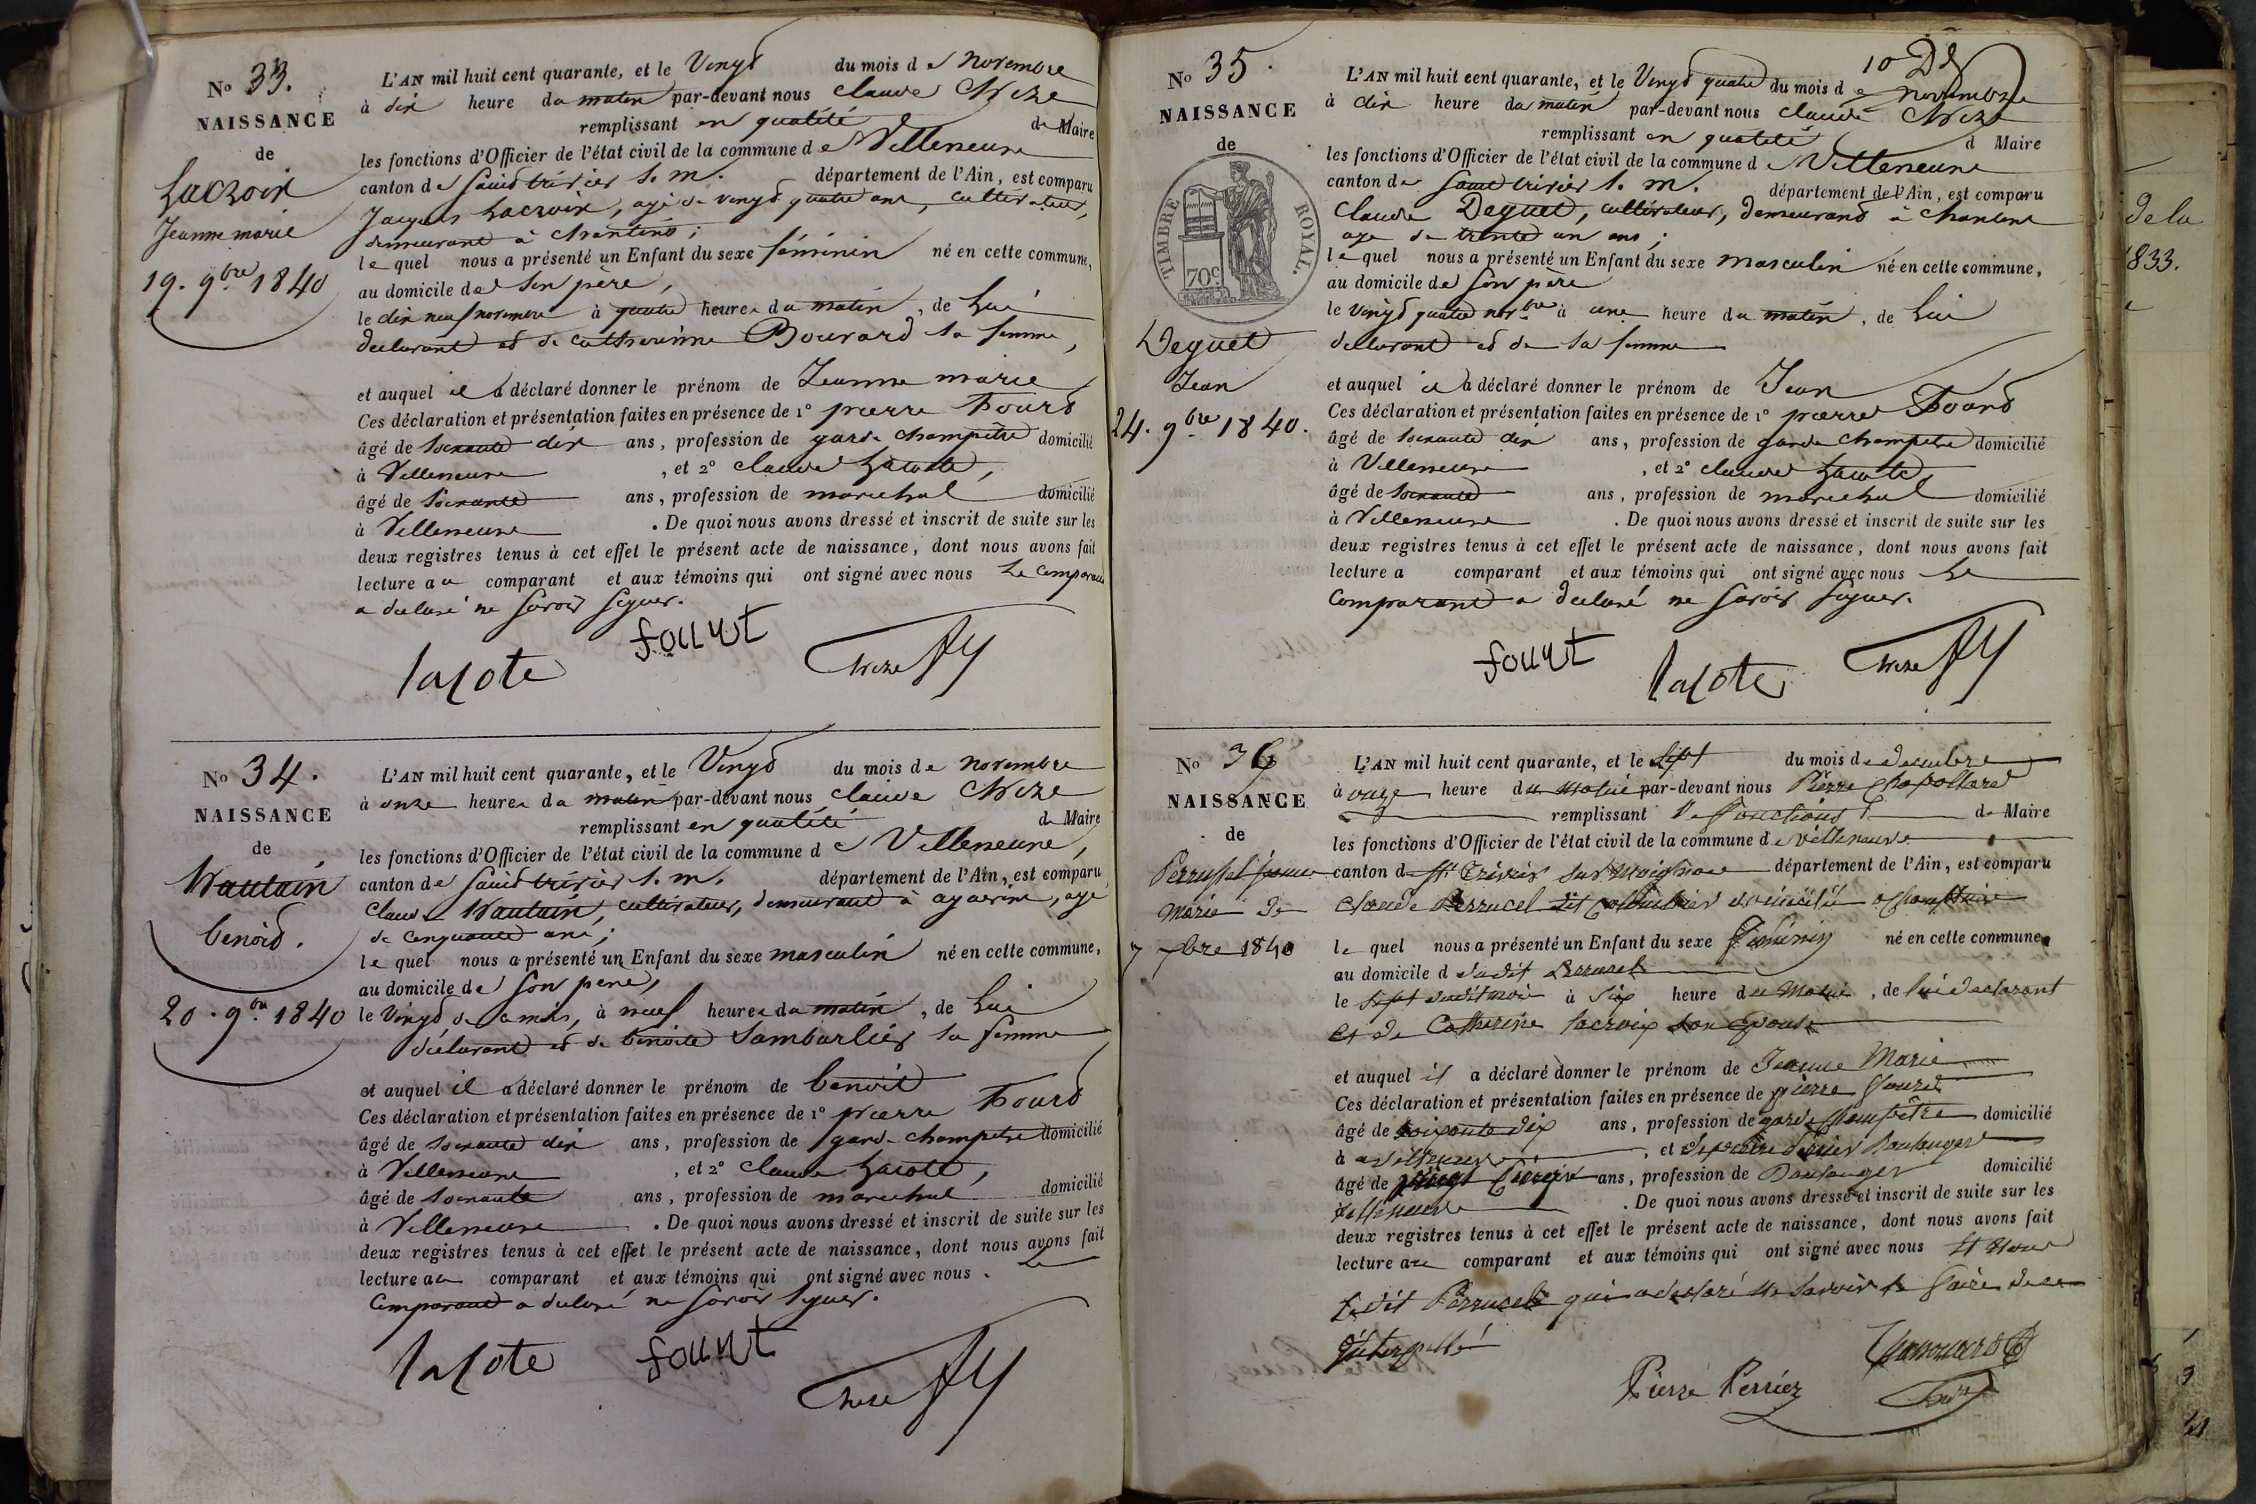 No 33.
NAISSANCE
de
Lacroix
Jeanne marie
19. 9bre 1840
L'AN mil huit cent quarante, et le Vingt du mois de novembre
à dix heure du matin par-devant nous claude
remplissant en qualité de Maire
les fonctions d'Officier de l'état civil de la commune de Villeneuve
canton de Saint trivier s. m. département de l'Ain, est comparu
Jacques Lacroix, agé de vingt quatre ans, cultivateur,
demeurant à chanteins ;
lequel nous a présenté un Enfant du sexe féminin né en cette commune,
au domicile de son père,
le dix neuf novembre à quatre heures du matin, de Lui
declarant et de catherine Bouvard sa femme,
et auquel il a déclaré donner le prénom de Jeanne marie
Ces déclaration et présentation faites en présence de 1° pierre Fourt
âgé de soixante dix ans, profession de garde champêtre domicilié
à Villeneuve , et 2° claude Lacote,
âgé de soixante ans, profession de marechal domicilié
à Villeneuve . De quoi nous avons dressé et inscrit de suite sur les
deux registres tenus à cet effet le présent acte de naissance, dont nous avons fait
lecture au comparant et aux témoins qui ont signé avec nous Le comparant
a declaré ne savoir signer.
lacote fourt
No 34.
NAISSANCE
de
Vautain
benoid.
20. 9bre 1840
L'AN mil huit cent quarante, et le Vingt du mois de novembre
à onze heures du matin par-devant nous claude
remplissant en qualité de Maire
les fonctions d'Officier de l'état civil de la commune de Villeneuve,
canton de Saint trivier s. m. département de l'Ain, est comparu
claude Vautain, cultivateur, demeurant à agnereins, agé
de cinquante ans ;
lequel nous a présenté un Enfant du sexe masculin né en cette commune,
au domicile de son père,
le Vingt de ce mois, à neuf heures du matin, de Lui
déclarant et de benoite Sambarlier sa femme
et auquel il a déclaré donner le prénom de benoit
Ces déclaration et présentation faites en présence de 1° pierre Fourt
âgé de soixante dix ans, profession de garde-champetre domicilié
à Villeneuve , et 2° claude Lacote,
âgé de soixante ans, profession de marechal domicilié
à Villeneuve . De quoi nous avons dressé et inscrit de suite sur les
deux registres tenus à cet effet le présent acte de naissance, dont nous avons fait
lecture au comparant et aux témoins qui ont signé avec nous. Le
comparant a declaré ne savoir signer.
lacote fourt
10 D
No 35.
NAISSANCE
de
TIMBRE ROYAL.
70c
Deguet
Jean
24. 9bre 1840.
L'AN mil huit cent quarante, et le Vingt quatre du mois de novembre
à dix heure du matin par-devant nous claude
remplissant en qualité d Maire
les fonctions d'Officier de l'état civil de la commune de Villeneuve
canton de Saint trivier s. m. département de l'Ain, est comparu
claude Deguet, cultivateur, demeurant à chanteins
age de trente un ans ;
lequel nous a présenté un Enfant du sexe masculin né en cette commune,
au domicile de son père
le vingt quatre novbre à une heure du matin, de Lui
declarant et de sa femme
et auquel il a déclaré donner le prénom de Jean
Ces déclaration et présentation faites en présence de 1° pierre Fourt
âgé de soixante dix ans, profession de garde champetre domicilié
à Villeneuve , et 2° claude Lacote
âgé de soixante ans, profession de marechal domicilié
à Villeneuve . De quoi nous avons dressé et inscrit de suite sur les
deux registres tenus à cet effet le présent acte de naissance, dont nous avons fait
lecture a comparant et aux témoins qui ont signé avec nous Le
comparant a declaré ne savoir signer.
fourt lacote
No 36
NAISSANCE
de
Perrussel Jeanne
Marie de
7 Xbre 1840
L'AN mil huit cent quarante, et le sept du mois de decembre
à onze heure du matin par-devant nous Pierre
remplissant fonctions de Maire
les fonctions d'Officier de l'état civil de la commune de villeneuve
canton d St Trivier sur Moignans département de l'Ain, est comparu
claude Perrucel dit
lequel nous a présenté un Enfant du sexe féminin né en cette commune
au domicile d dudit Perrucel
le sept dudit mois à six heure du Matin, de lui declarant
et de Catherine lacroix son Epouse
et auquel il a déclaré donner le prénom de Jeanne Marie
Ces déclaration et présentation faites en présence de pierre fourt
âgé de soixante dix ans, profession de garde champêtre domicilié
à villeneuve , et de pierre Perrier boulanger
âgé de ans, profession de Boulanger domicilié
villeneuve . De quoi nous avons dressé et inscrit de suite sur les
deux registres tenus à cet effet le présent acte de naissance, dont nous avons fait
lecture au comparant et aux témoins qui ont signé avec nous et non
le dit Perrucel qui a declaré ne savoir le faire de ce
interpellé
Pierre Perrier
de la
1833.